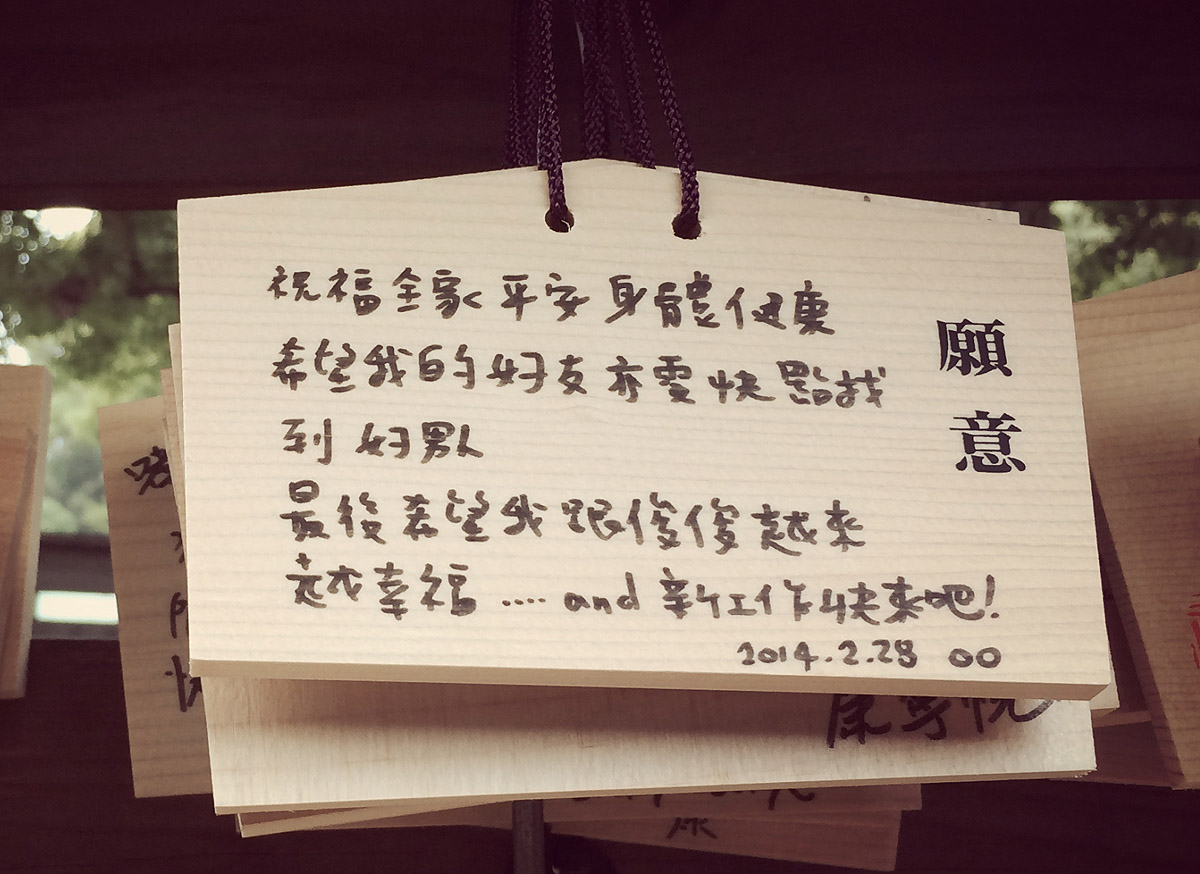 願意
祝福全家平安身體健康
希望我的好友亦雯快點找
到好男人
最後希望我跟俊俊越來
越幸福 .... and 新工作快來吧!
2014.2.28 OO